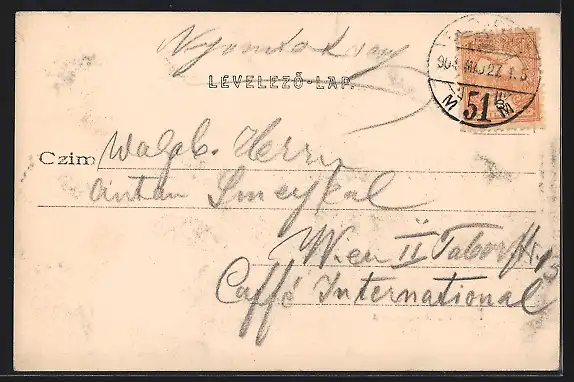 Nyomtatvány
LEVELEZŐ-LAP.
51
M M
Czim Wolgb. Herrn
Anton Smeykal
Wien II Taborstr. 13
Caffé International